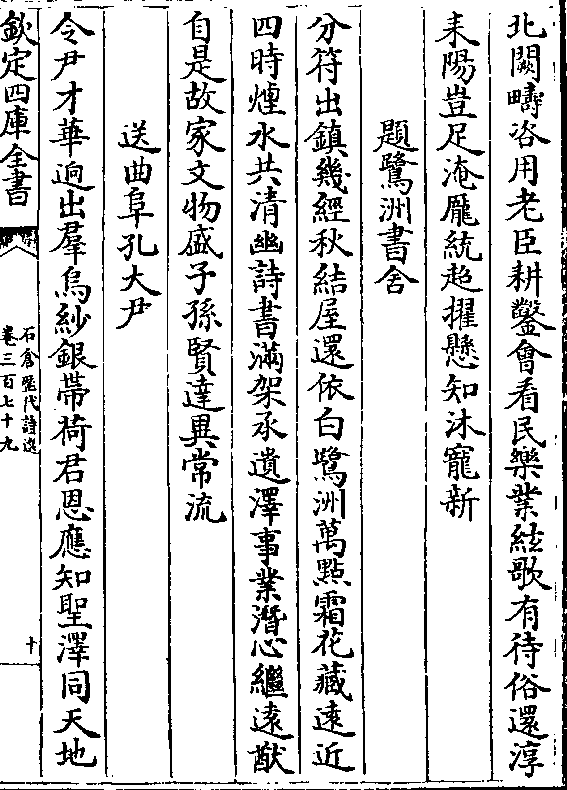 北闕疇咨用老臣耕鑿會看民樂業絃歌有待俗還淳
耒陽豈足淹龎統超擢懸知沐寵新
題鷺洲書舍
分符出鎮幾經秋結屋還依白鷺洲萬點霜花藏遠近
四時煙水共清幽詩書滿架承遺澤事業潛心繼遠猷
自是故家文物盛子孫賢達異常流
送曲阜孔大尹
令尹才華逈出羣烏紗銀帶荷君恩應知聖澤同天地
欽定四庫全書
石倉歷代詩選
卷三百七十九
十